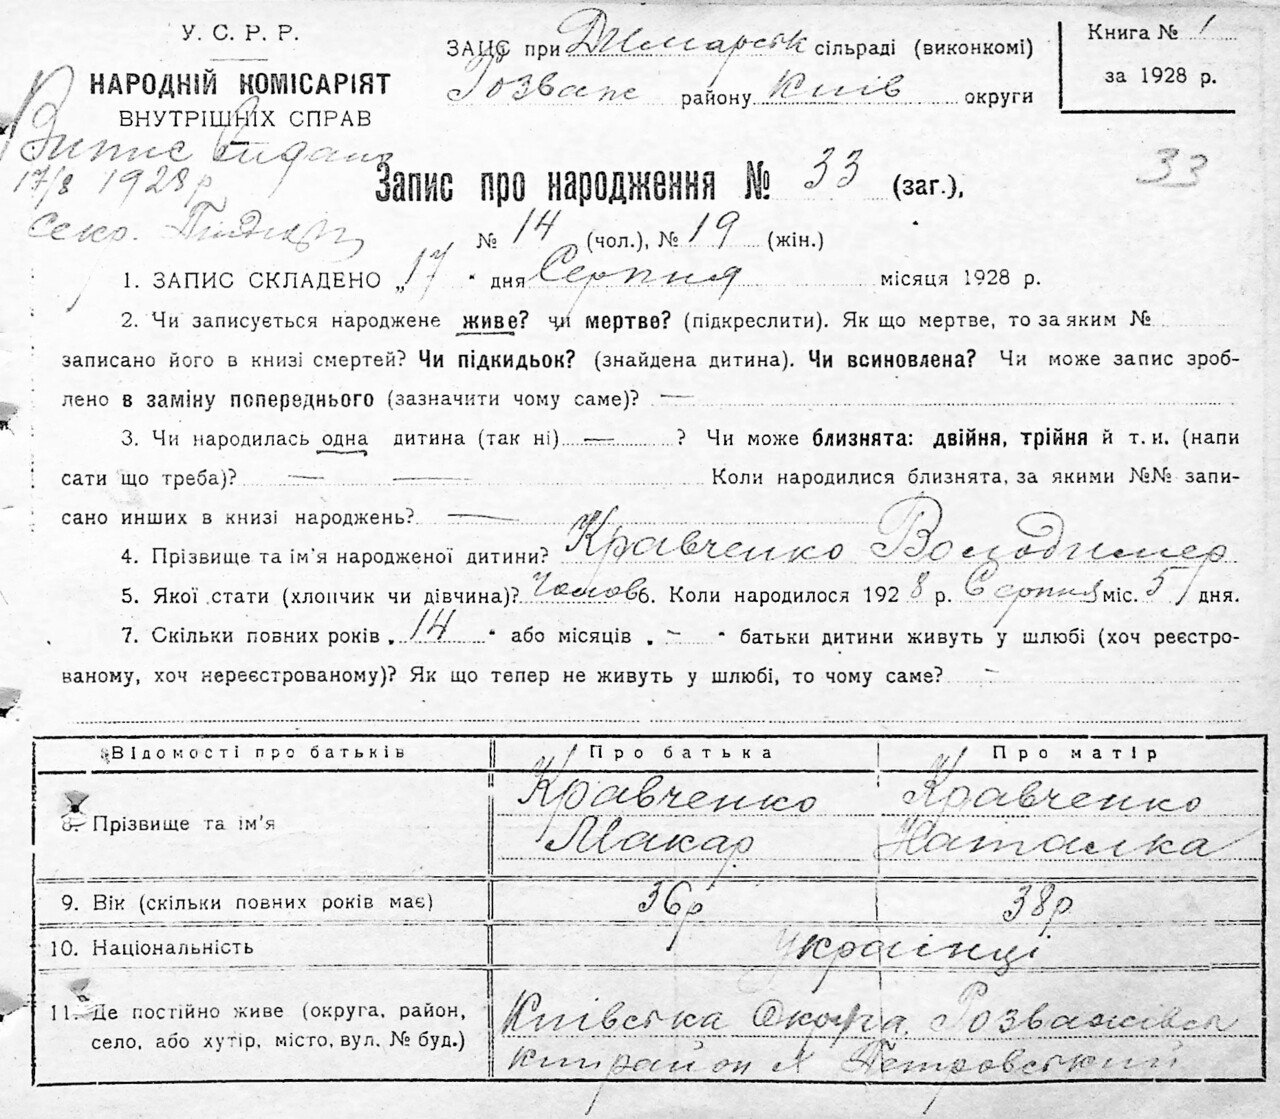 У. С. Р. Р.
НАРОДНІЙ КОМІСАРІЯТ
ВНУТРІШНІХ СПРАВ
ЗАЦС при Димарськ сільраді (виконкомі)
Розваж району Київ округи
Книга № 1
за 1928 р.
Випис видано
17/8 1928 р
Секр.
Запис про народження № 33 (заг.),
33
№ 14 (чол.), № 19 (жін.)
1. ЗАПИС СКЛАДЕНО „17" дня Серпня місяця 1928 р.
2. Чи записується народжене живе? чи мертве? (підкреслити). Як що мертве, то за яким №
записано його в книзі смертей? Чи підкидьок? (знайдена дитина). Чи всиновлена? Чи може запис зроб-
лено в заміну попереднього (зазначити чому саме)? —
3. Чи народилась одна дитина (так ні) — ? Чи може близнята: двійня, трійня й т. и. (напи
сати що треба)? — — Коли народилися близнята, за якими №№ запи-
сано инших в книзі народжень? —
4. Прізвище та ім'я народженої дитини? Кравченко Володимер
5. Якої стати (хлопчик чи дівчина)? Чолов 6. Коли народилося 1928 р. Серпня міс. 5 дня.
7. Скільки повних років „14" або місяців „-" батьки дитини живуть у шлюбі (хоч реєстро-
ваному, хоч нереєстрованому)? Як що тепер не живуть у шлюбі, то чому саме? -
Відомості про батьків Про батька Про матір
8. Прізвище та ім'я Кравченко Кравченко
Макар Наталка
9. Вік (скільки повних років має) 36р 38р
10. Національність українці
11. Де постійно живе (округа, район, Київська Округа, Розважівсь
село, або хутір, місто, вул. № буд.) кий район х Петровський